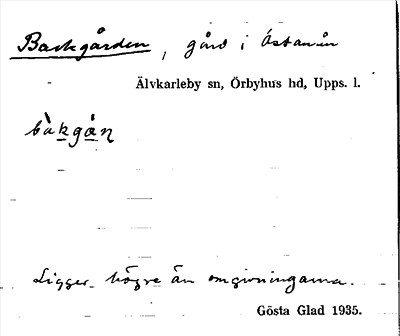 Backgården, gård i Östanån
Älvkarleby sn, Örbyhus hd, Upps. l.
bàkgån
Ligger högre än omgivningarna.
Gösta Glad 1935.